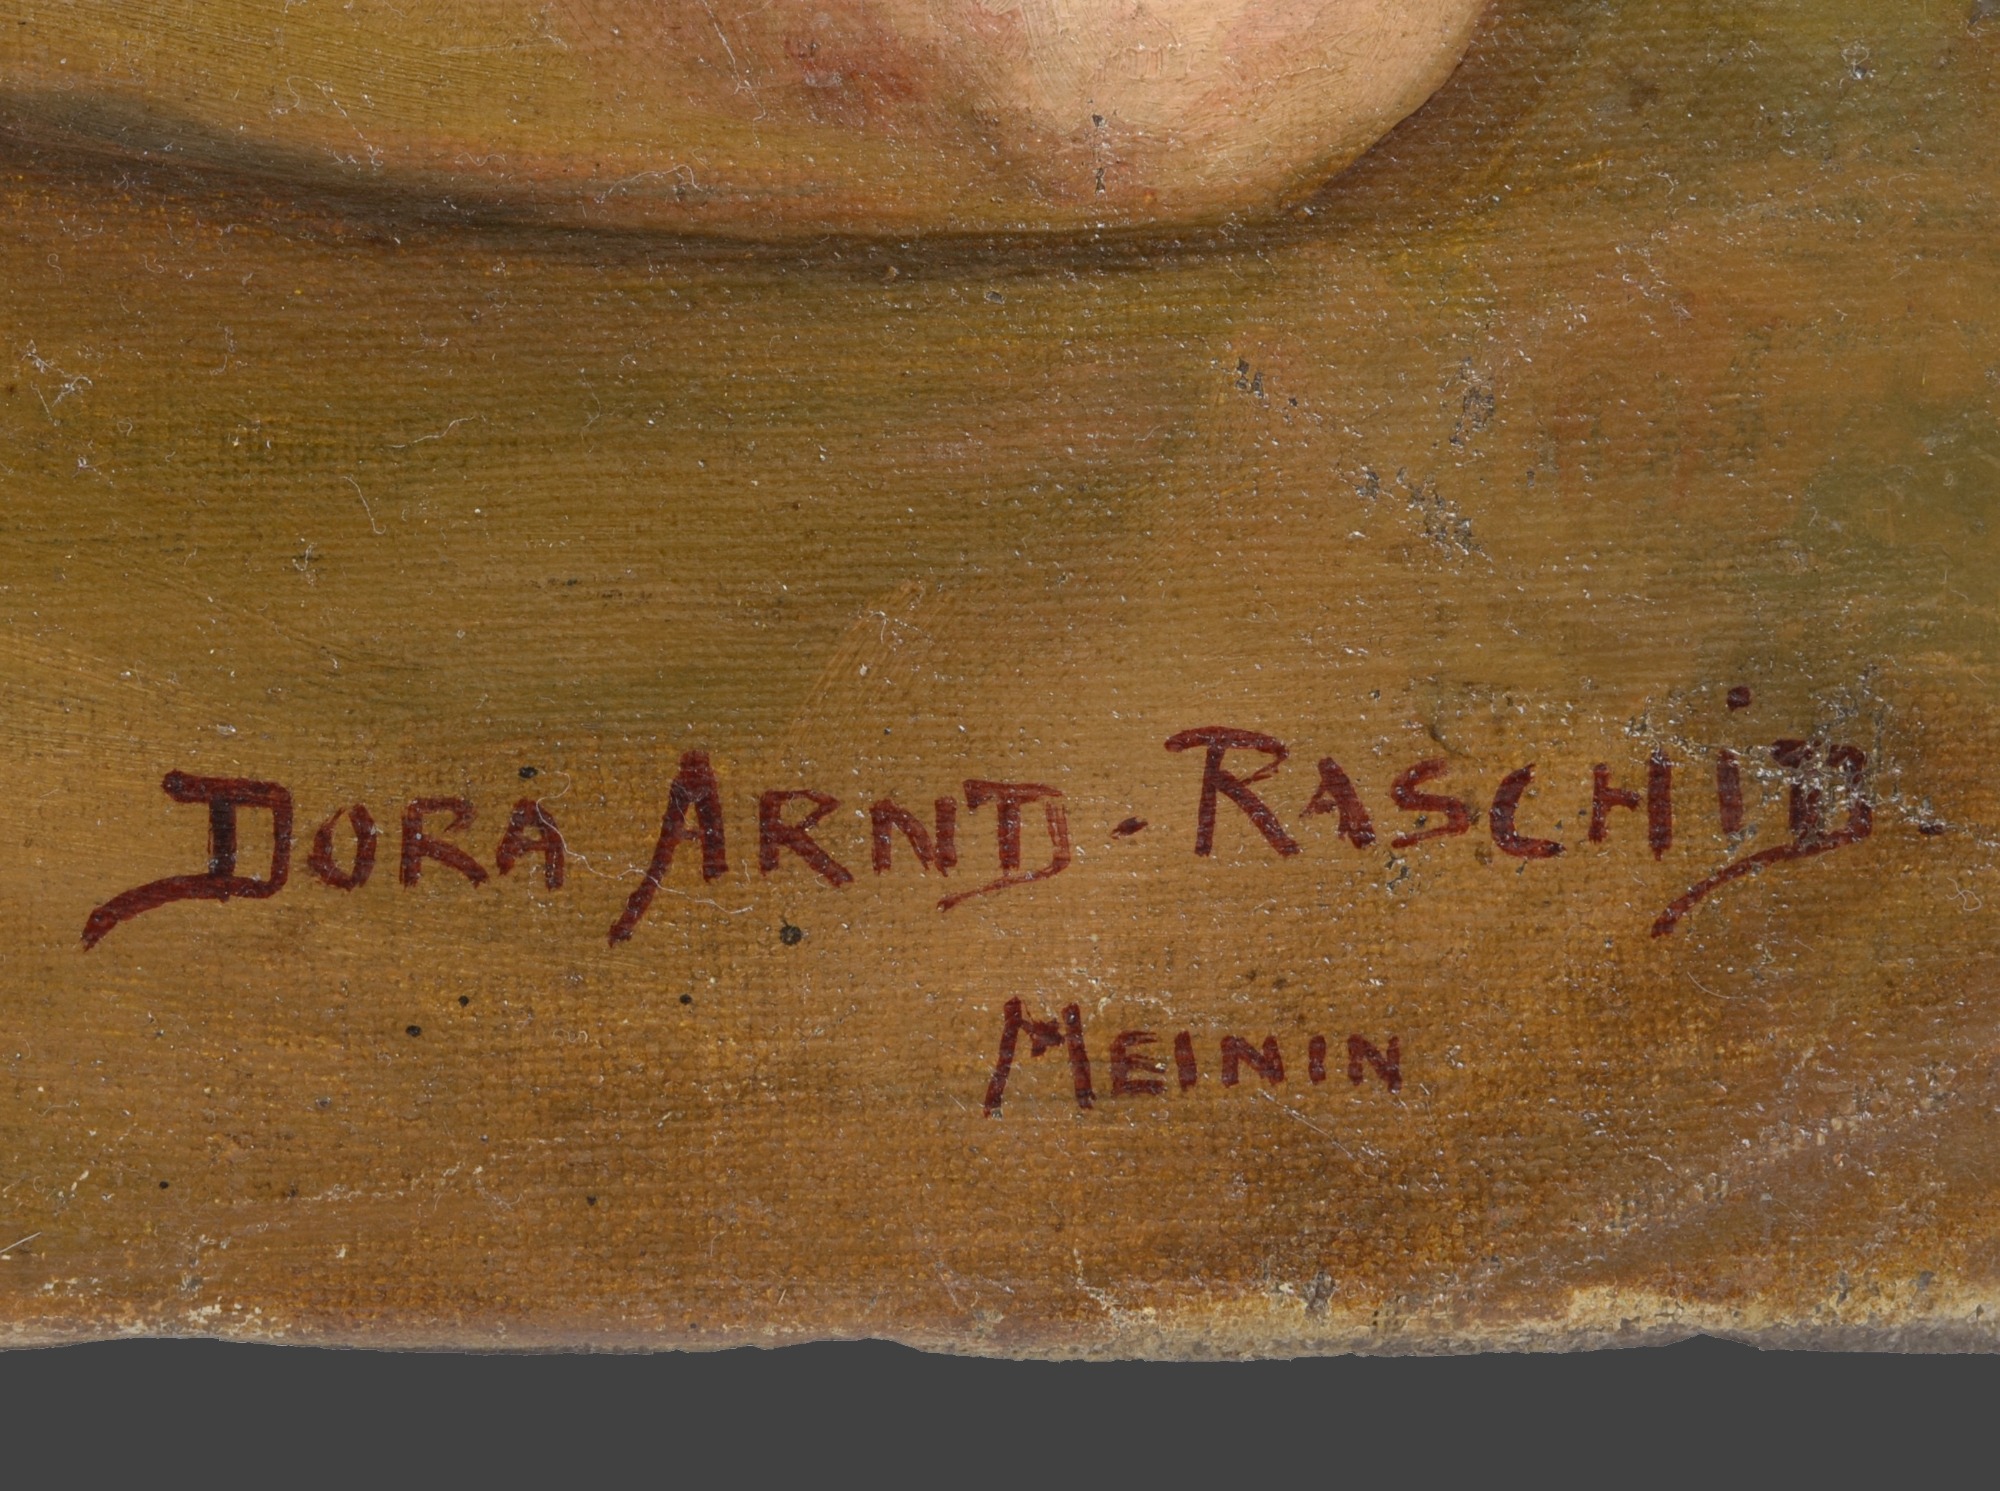 DORA ARND-RASCHiD.
MEININ